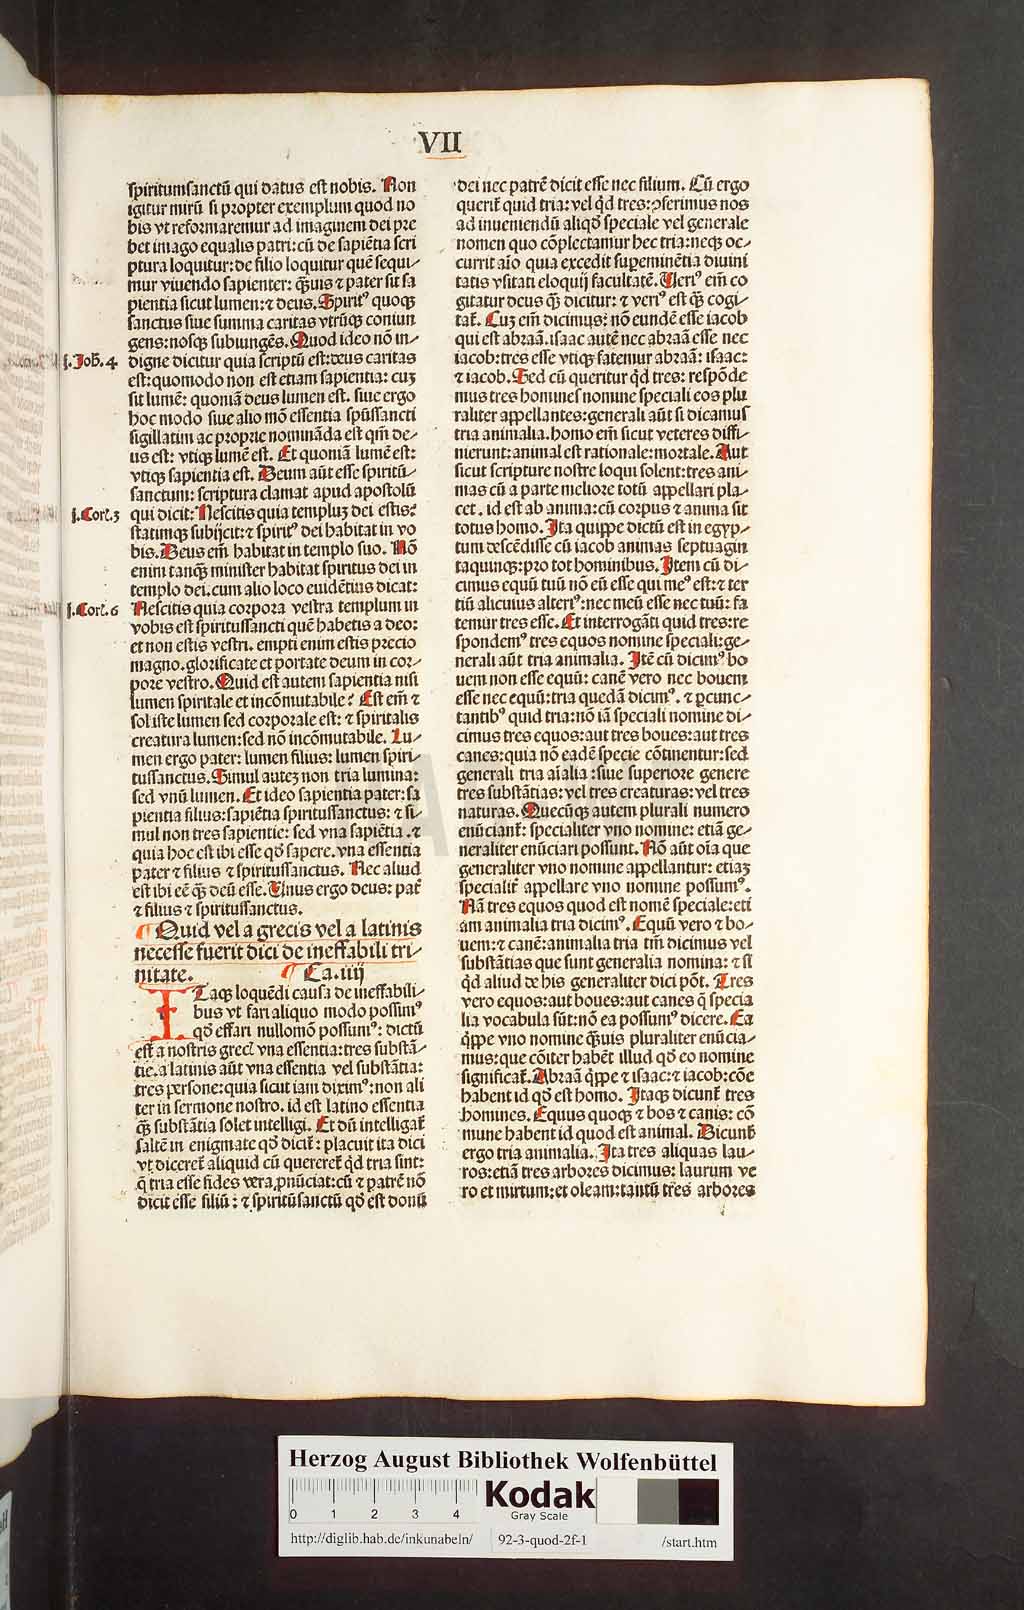 VII
spiritumsanctū qui datus est nobis. Non
igitur mirū si propter exemplum quod no
bis vt reformaremur ad imaginem dei pre
bet imago equalis patri: cū de sapiētia scri
ptura loquitur: de filio loquitur quē sequi-
mur viuendo sapienter: quis et pater sit sa
pientia sicut lumen: ⁊ deus. Spiritꝰ quoqꝫ
sanctus siue summa caritas vtrūqꝫ coniun
gens: nosqꝫ subiungēs. Quod ideo nō in-
j. Joh̄. 4
digne dicitur quia scriptū est: deus caritas
est: quomodo non est etiam sapientia: cuꝫ
sit lumē: quoniā deus lumen est. siue ergo
hoc modo siue alio mō essentia spūssancti
sigillatim ac proprie nomināda est qm̄ de-
us est: vtiqꝫ lumē est. Et quoniā lumē est:
vtiqꝫ sapientia est. Deum aūt esse spiritū-
sanctum: scriptura clamat apud apostolū
j. Corī. 3
qui dicit: Nescitis quia templuꝫ dei estis?
statimqꝫ subijcit: ⁊ spiritꝰ dei habitat in vo
bis. Deus em̄ habitat in templo suo. Nō
enim tanqꝫ minister habitat spiritus dei in
templo dei. cum alio loco euidētius dicat:
j. Corī. 6
Nescitis quia corpora vestra templum in
vobis est spiritussancti quē habetis a deo:
et non estis vestri. empti enim estis precio
magno. glorificate et portate deum in cor-
pore vestro. Quid est autem sapientia nisi
lumen spirituale et incōmutabile? Est em̄ ⁊
sol iste lumen sed corporale est: ⁊ spiritalis
creatura lumen: sed nō incōmutabile. Lu-
men ergo pater: lumen filius: lumen spiri-
tussanctus. Simul auteꝫ non tria lumina:
sed vnū lumen. Et ideo sapientia pater: sa
pientia filius: sapiētia spiritussanctus: ⁊ si-
mul non tres sapientie: sed vna sapiētia. ⁊
quia hoc est ibi esse qđ sapere. vna essentia
pater ⁊ filius ⁊ spiritussanctus. Nec aliud
est ibi eē qꝫ deū esse. Vnus ergo deus: pat̄
⁊ filius ⁊ spiritussanctus.
¶ Quid vel a grecis vel a latinis
necesse fuerit dici de ineffabili tri-
nitate. ¶ Ca. iiij
ITaqꝫ loquēdi causa de ineffabili-
bus vt fari aliquo modo possimꝰ
qđ effari nullomō possumꝰ: dictū
est a nostris grecl vna essentia: tres substā-
tie. a latinis aūt vna essentia vel substātia:
tres persone: quia sicut iam diximꝰ: non ali
ter in sermone nostro. id est latino essentia
qꝫ substātia solet intelligi. Et dū intelligat̄
saltē in enigmate qđ dicit̄: placuit ita dici
vt diceret̄ aliquid cū quereret̄ qđ tria sint:
q̄ tria esse fides vera pnūciat: cū ⁊ patrē nō
dicit esse filiū: ⁊ spiritūsanctū qđ est donū
dei nec patrē dicit esse nec filium. Cū ergo
querit̄ quid tria: vel qđ tres: ꝯferimus nos
ad inueniendū aliqđ speciale vel generale
nomen quo cōplectamur hec tria: neqꝫ oc-
currit aīo quia excedit supeminētia diuini
tatis vsitati eloquij facultatē. Ueriꝰ em̄ co
gitatur deus qꝫ dicitur: ⁊ veriꝰ est qꝫ cogi-
tat̄. Cuꝫ em̄ dicimus: nō eundē esse iacob
qui est abraā. isaac autē nec abraā esse nec
iacob: tres esse vtiqꝫ fatemur abraā: isaac:
⁊ iacob. Sed cū queritur qđ tres: respōde
mus tres homines nomine speciali eos plu
raliter appellantes: generali aūt si dicamus
tria animalia. homo em̄ sicut veteres diffi-
nierunt: animal est rationale: mortale. Aut
sicut scripture nostre loqui solent: tres ani-
mas cū a parte meliore totū appellari pla-
cet. id est ab anima: cū corpus ⁊ anima sit
totus homo. Ita quippe dictū est in egyp-
tum descēdisse cū iacob animas septuagin
taquinqꝫ: pro tot hominibus. Item cū di-
cimus equū tuū nō eū esse qui meꝰ est: ⁊ ter
tiū alicuius alteriꝰ: nec meū esse nec tuū: fa
temur tres esse. Et interrogāti quid tres: re
spondemꝰ tres equos nomine speciali: ge-
nerali aūt tria animalia. Itē cū dicimꝰ bo
uem non esse equū: canē vero nec bouem
esse nec equū: tria quedā dicimꝰ. ⁊ pcunc-
tantibꝰ quid tria: nō iā speciali nomine di-
cimus tres equos: aut tres boues: aut tres
canes: quia nō eadē specie cōtinentur: sed
generali tria aīalia: siue superiore genere
tres substātias: vel tres creaturas: vel tres
naturas. Quecūqꝫ autem plurali numero
enūciant̄: specialiter vno nomine: etiā ge-
neraliter enūciari possunt. Nō aūt oīa que
generaliter vno nomine appellantur: etiaꝫ
specialit̄ appellare vno nomine possumꝰ.
Nā tres equos quod est nomē speciale: eti
am animalia tria dicimꝰ. Equū vero ⁊ bo-
uem: ⁊ canē: animalia tria tm̄ dicimus vel
substātias que sunt generalia nomina: ⁊ si
qđ aliud de his generaliter dici pōt. Tres
vero equos: aut boues: aut canes q̄ specia
lia vocabula sūt: nō ea possumꝰ dicere. Ea
q̄ppe vno nomine qꝫuis pluraliter enūcia-
mus: que cōiter habēt illud qđ eo nomine
significat̄. Abraā q̄ppe ⁊ isaac: ⁊ iacob: cōe
habent id qđ est homo. Itaqꝫ dicunt̄ tres
homines. Equus quoqꝫ ⁊ bos ⁊ canis: cō
mune habent id quod est animal. Dicunt̄
ergo tria animalia. Ita tres aliquas lau-
ros: etiā tres arbores dicimus: laurum ve
ro et mirtum: et oleam: tantū tres arbores
Herzog August Bibliothek Wolfenbüttel
0 1 2 3 4
Kodak
Gray Scale
http://diglib.hab.de/inkunabeln/ 92-3-quod-2f-1 /start.htm